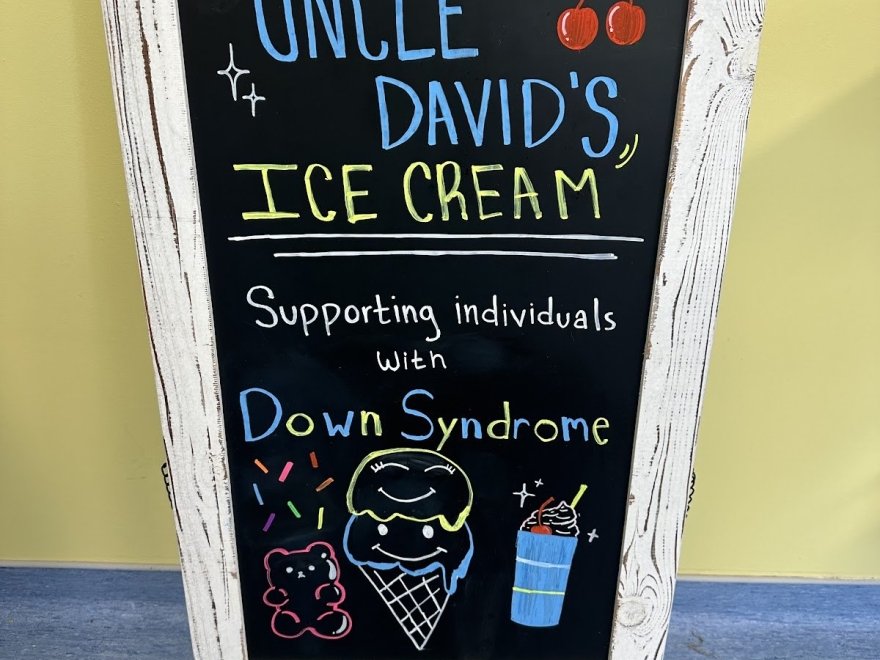 UNCLE
DAVID'S
ICE CREAM
Supporting individuals
with
Down Syndrome